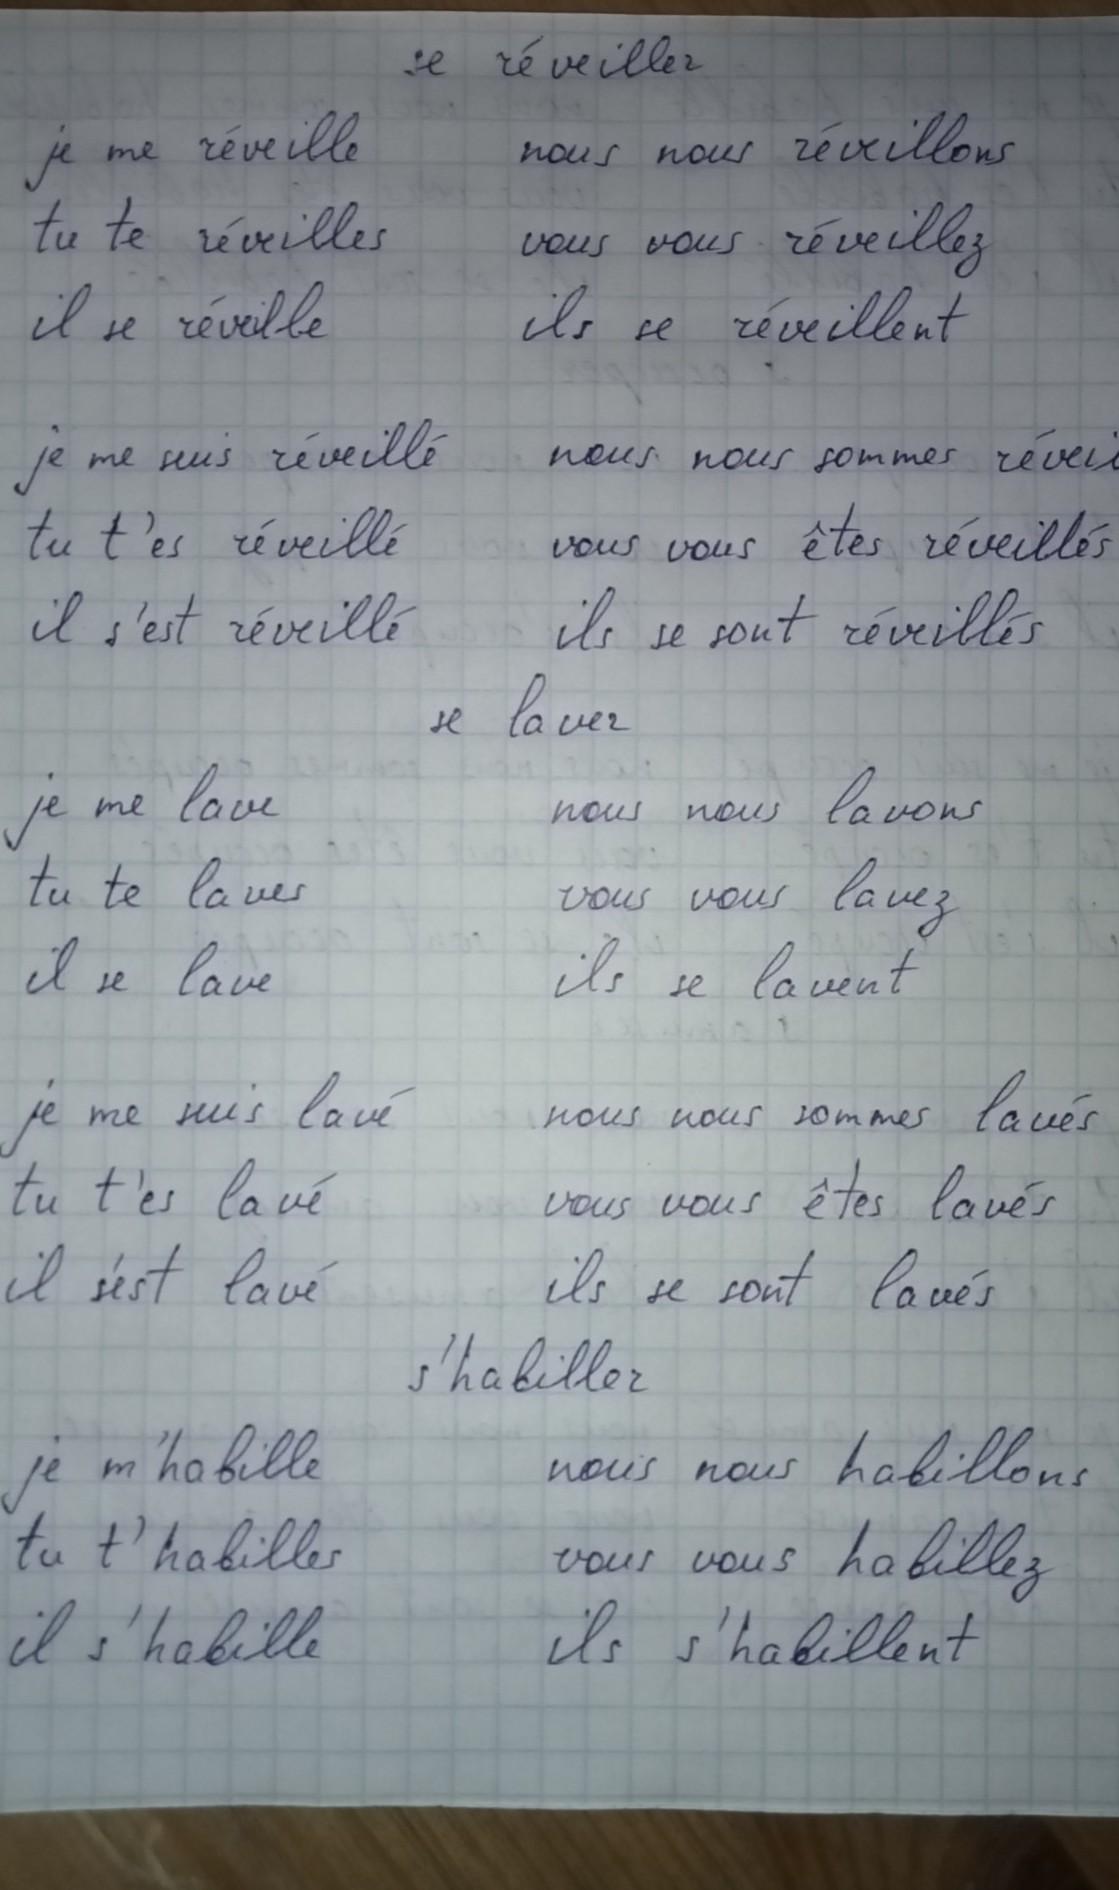 se réveiller
je me réveille nous nous réveillons
tu te réveilles vous vous réveillez
il se réveille ils se réveillent
je me suis réveillé nous nous sommes
tu t'es réveillé vous vous êtes réveillés
il s'est réveillé ils se sont réveillés
se laver
je me lave nous nous lavons
tu te laves vous vous lavez
il se lave ils se lavent
je me suis lavé nous nous sommes lavés
tu t'es lavé vous vous êtes lavés
il s'est lavé ils se sont lavés
s'habiller
je m'habille nous nous habillons
tu t'habilles vous vous habillez
il s'habille ils s'habillent